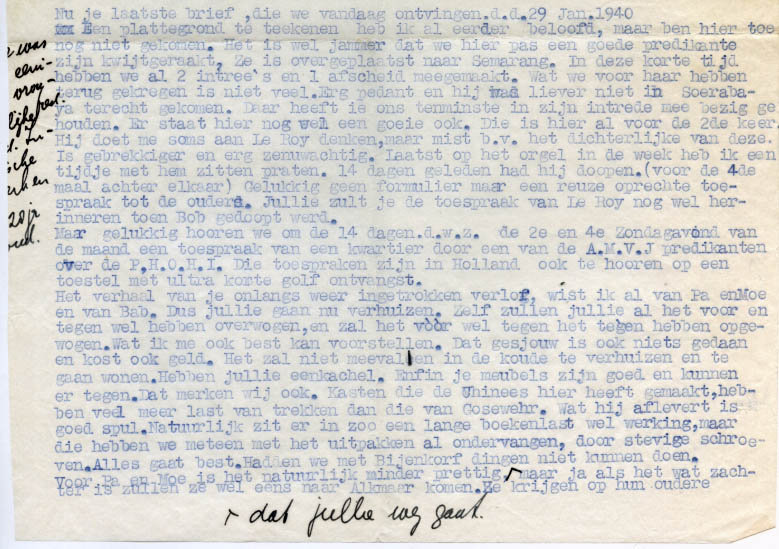 Nu je laatste brief ,die we vandaag ontvingen.d.d.29 Jan.1940
Een plattegrond te teekenen heb ik al eerder beloofd, maar ben hier toe
nog niet gekomen. Het is wel jammer dat we hier pas een goede predikante
zijn kwijtgeraakt, Ze is overgeplaatst naar Semarang. In deze korte tijd
hebben we al 2 intree's en 1 afscheid meegemaakt. Wat we voor haar hebben
terug gekregen is niet veel.Erg pedant en hij wad liever niet in Soeraba-
ya terecht gekomen. Daar heeft ie ons tenminste in zijn intrede mee bezig ge
houden. Er staat hier nog wel een goeie ook. Die is hier al voor de 2de keer.
Hij doet me soms aan Le Roy denken,maar mist b.v. het dichterlijke van deze.
Is gebrekkiger en erg zenuwachtig. Laatst op het orgel in de week heb ik een
tijdje met hem zitten praten. 14 dagen geleden had hij doopen.(voor de 4de
maal achter elkaar) Gelukkig geen formulier maar een reuze oprechte toe-
spraak tot de ouders. Jullie zult je de toespraak van Le Roy nog wel her-
inneren toen Bob gedoopt werd.
Maar gelukkig hooren we om de 14 dagen.d.w.z. de 2e en 4e Zondagavond van
de maand een toespraak van een kwartier door een van de A.M.V.J predikanten
over de P.H.O.H.I. Die toespraken zijn in Holland ook te hooren op een
toestel met ultra korte golf ontvangst.
Het verhaal van je onlangs weer ingetrokken verlof, wist ik al van Pa enMoe
en van Bab. Dus jullie gaan nu verhuizen. Zelf zullen jullie al het voor en
tegen wel hebben overwogen,en zal het vòòr wel tegen het tegen hebben opge-
wogen.Wat ik me ook best kan voorstellen. Dat gesjouw is ook niets gedaan
en kost ook geld. Het zal niet meevallen in de koude te verhuizen en te
gaan wonen.Hebben jullie eenkachel. Enfin je meubels zijn goed en kunnen
er tegen.Dat merken wij ook. Kasten die de Chinees hier heeft gemaakt,heb-
ben veel meer last van trekken dan die van Gosewehr. Wat hij aflevert is
goed spul.Natuurlijk zit er in zoo een lange boekenlast wel werking,maar
die hebben we meteen met het uitpakken al ondervangen, door stevige schroe-
ven.Alles gaat best.Hadden we met Bijenkorf dingen niet kunnen doen.
Voor Pa en Moe is het natuurlijk minder prettig, maar ja als het wat zach-
ter is zullen ze wel eens naar Alkmaar komen.Ze krijgen op hun oudere
dat jullie weg gaat.